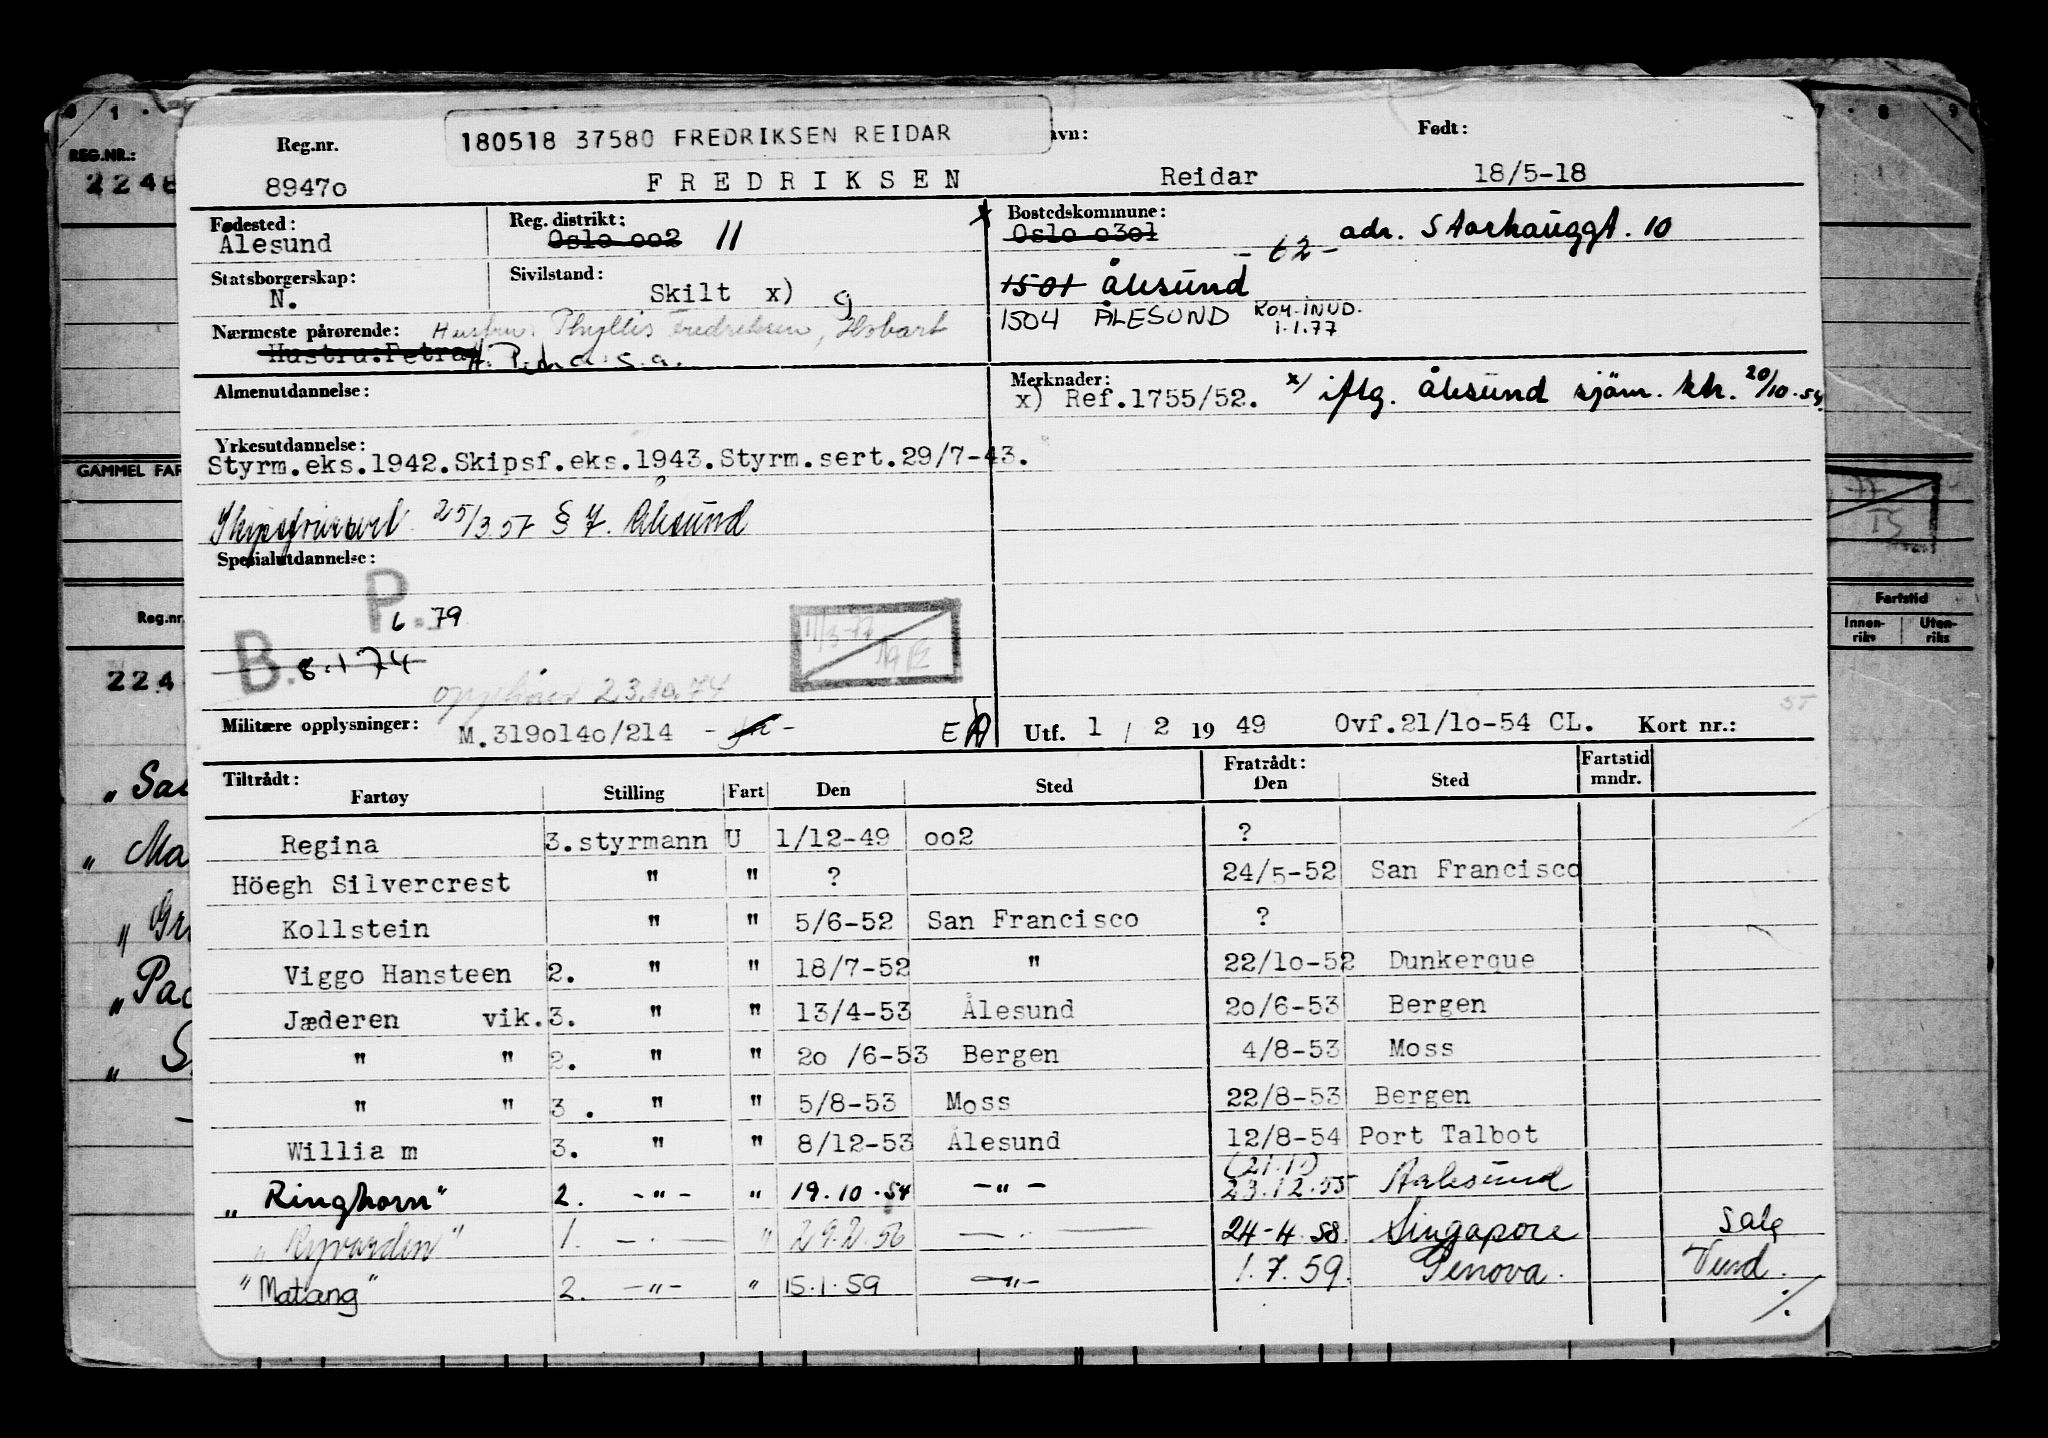 180518 37580 FREDRIKSEN REIDAR
Reg.nr. avn: Født:
89470 FREDRIKSEN Reidar 18/5-18
Fødested: Ålesund
Reg. distrikt: Oslo 002 11
x Bostedskommune: Oslo 0301
- 62 - adr. Storhauggt. 10
1501 Ålesund
1504 ÅLESUND KOM.INUD. 1.1.77
Statsborgerskap: N.
Sivilstand: Skilt x) g
Nærmeste pårørende: Hustru: Phyllis Fredriksen, Hobart
Hustru:Petra H. Petra s.a.
Almenutdannelse:
Merknader:
x) Ref.1755/52. x/ iflg. Ålesund sjøm. ktr. 20/10.54
Yrkesutdannelse:
Styrm.eks.1942.Skipsf.eks.1943.Styrm.sert.29/7-43.
25/3.57 § 7. Ålesund
Spesialutdannelse:
P. 6 79
B. 8.1 74
23.10.74
11/3-77
Militære opplysninger: M.3190140/214
E
Utf. 1 / 2 19 49 Ovf.21/10-54 CL. Kort nr.:
Tiltrådt: Fratrådt: Fartstid mndr.
Fartøy Stilling Fart Den Sted Den Sted
Regina 3.styrmann U 1/12-49 002 ?
Höegh Silvercrest " " ? 24/5-52 San Francisco
Kollstein " " 5/6-52 San Francisco ?
Viggo Hansteen 2. " " 18/7-52 " 22/10-52 Dunkerque
Jæderen vik.3. " " 13/4-53 Ålesund 20/6-53 Bergen
" " 2. " " 20 /6-53 Bergen 4/8-53 Moss
" " 3 . " " 5/8-53 Moss 22/8-53 Bergen
Willia m 3. " " 8/12-53 Ålesund 12/8-54 Port Talbot
„Ringhorn" 2. -"- " 19.10.54 -"- 23.12.55 Aalesund
„Ryvarden" 1. - " 29.2.56 - 24-4.58. Singapore Salg
"Matang" 2. -"- " 15.1.59 -"- 1.7.59. Genova. Vend. ./.
REG.NR.:
2248
GAMMEL FAR
Reg.nr
224
Fartstid
Innen-riks Uten-riks
7 . 8 9